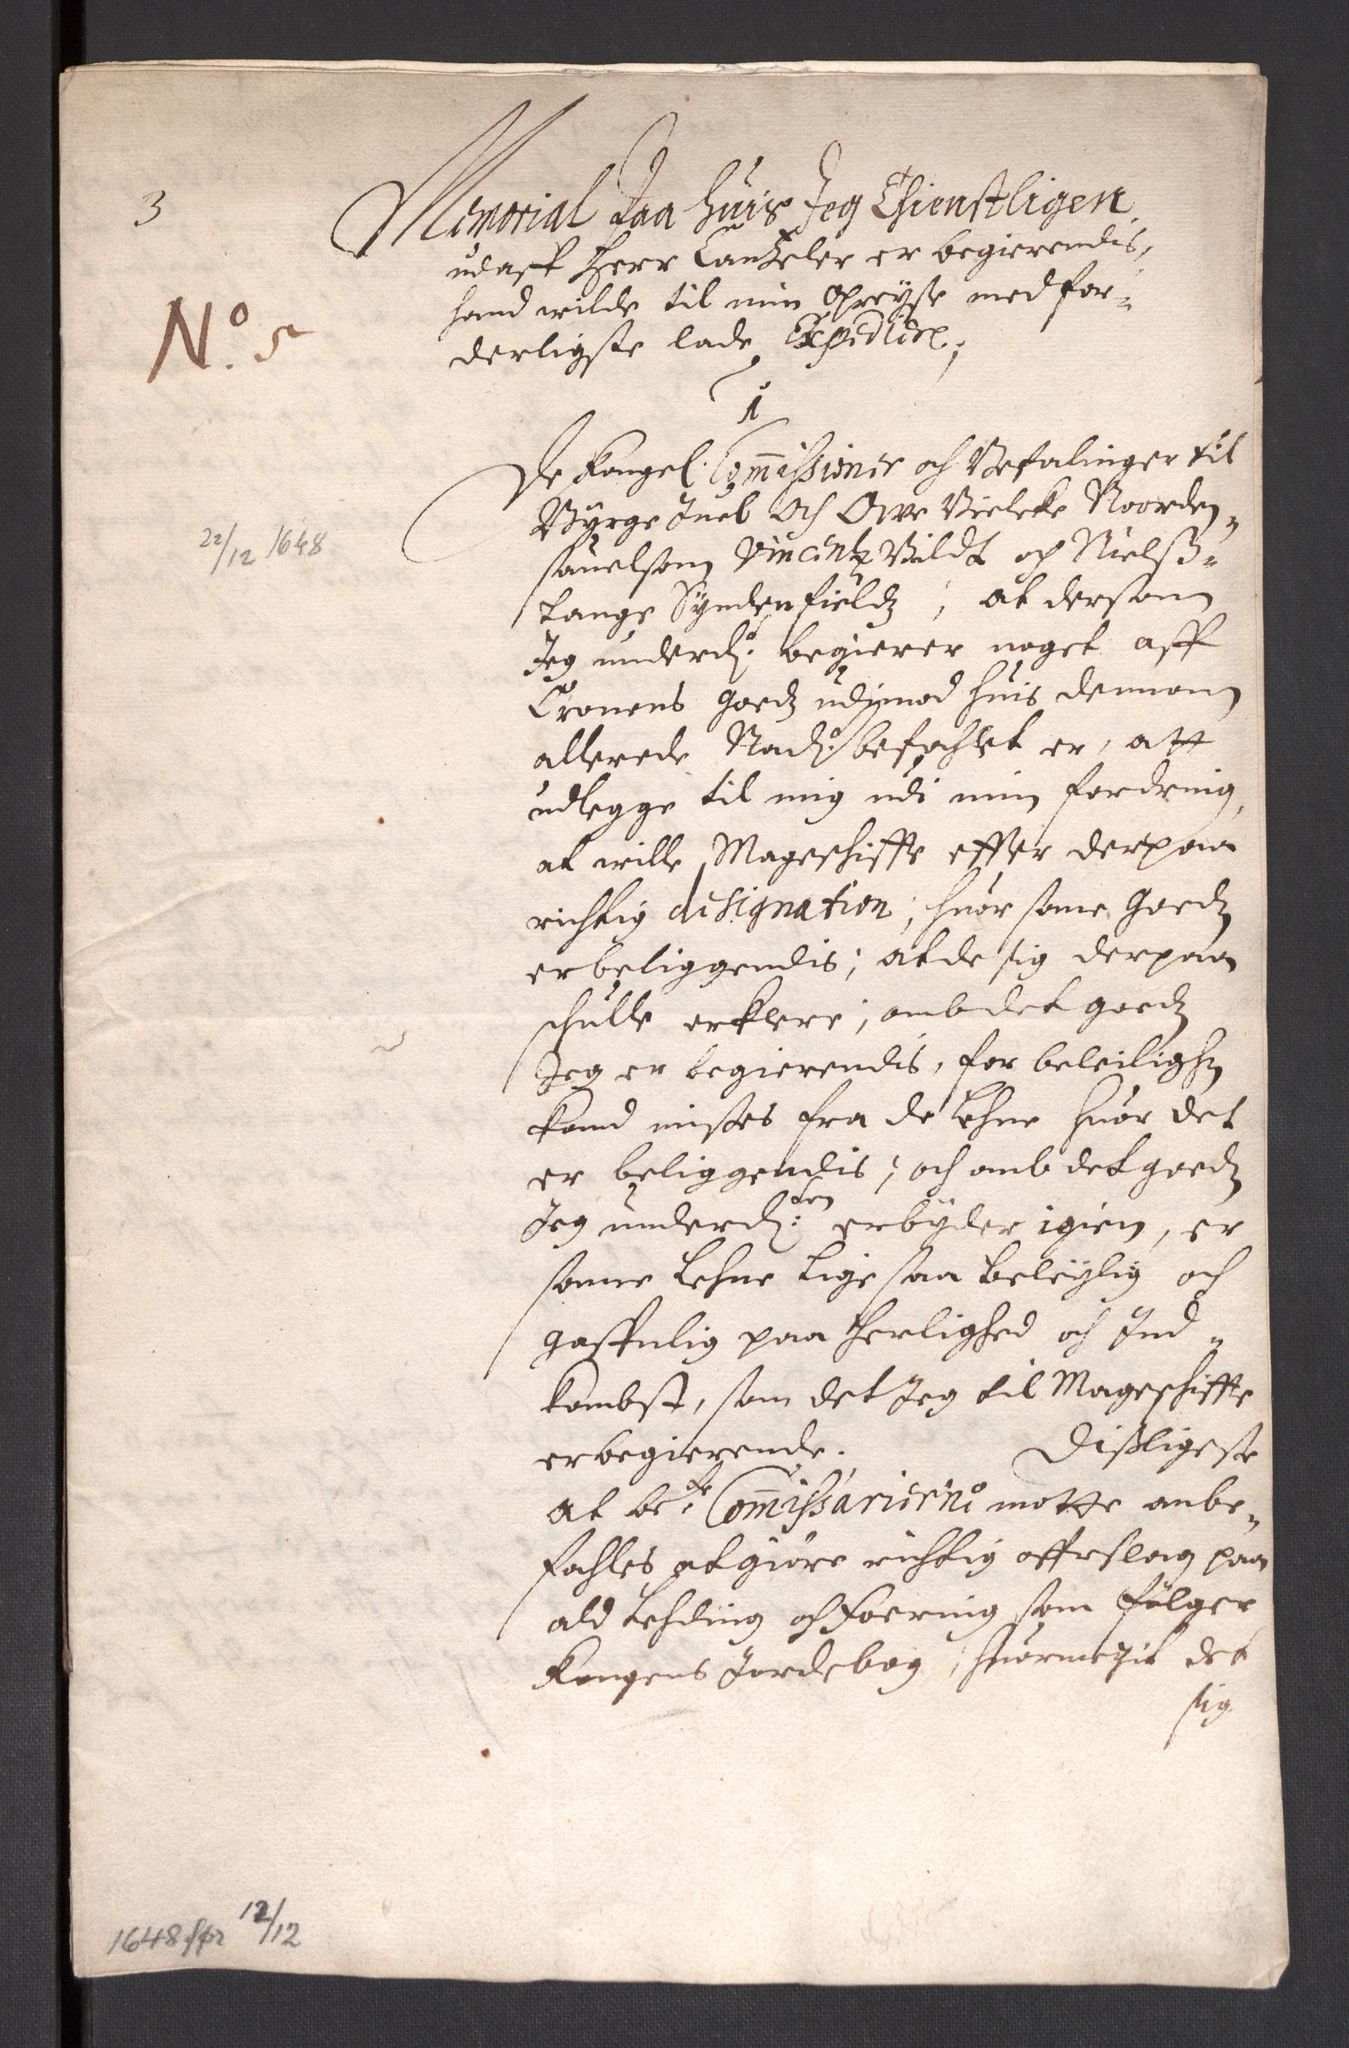 3
Memorial Paa huis Jeg Thienstligen
udaff Herr Cantzeler er begierendis,
hand wilde til min opreyse med for-
derligste lade Expedicere;
No. 5
1
De kongel. Commissioner och Befalinger til
Byrge Juel och Owe Bielcke Noorden-
saauelsom Vincentz Bildt och Niels
Lange Syndenfieldz, at dersom
Jeg underd: begierer noget aff
Cronens goedz udimod huis dennom
allerede Naad: befahlet er, att
udlegge til mig udi min fordring,
at wille Mageschiffte effter derpaa
richtig designation, huor same goedz
er beliggendis; at de sig derpaa
schulle erklere, omb det goedz
Jeg er begierendis, for beleilighed
kand mistes fra de Lehne huor det
er beliggendis; och omb det goedz
Jeg underd:en erbyder igien, er
somme Lehne lige saa beleylig och
gaffnlig paa herlighed och Ind-
kombst, som det Jeg til Mageschiffte
er begierende. Disligeste
at be:te Commissarierne motte anbe-
fahles at giøre richtig offuerslag paa
ald Lehding och Foering som følger
Kongens Jordebog, huormegit det
sig
22/12 1648
1648 før 12/12